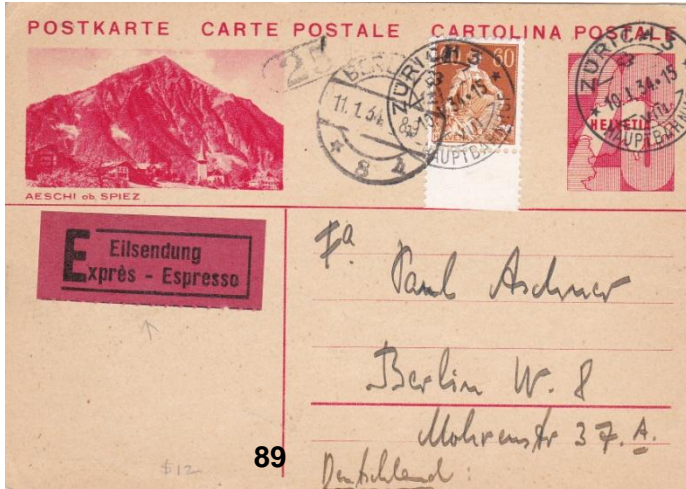 POSTKARTE CARTE POSTALE CARTOLINA POSTALE
25
BERLIN
11.1.34
* 8 b
ZÜRICH 3
* 10.I.34.15 *
VIII
HAUPTBAHNHOF
60 60
ZÜRICH 3
* 10.I.34.15 *
VIII
HAUPTBAHNHOF
HELVETIA
20
AESCHI ob. SPIEZ
Eilsendung
Exprès - Espresso
Fa
Paul Aschner
Berlin W. 8
Mohrenstr 37.A.
Deutschland:
$12
89